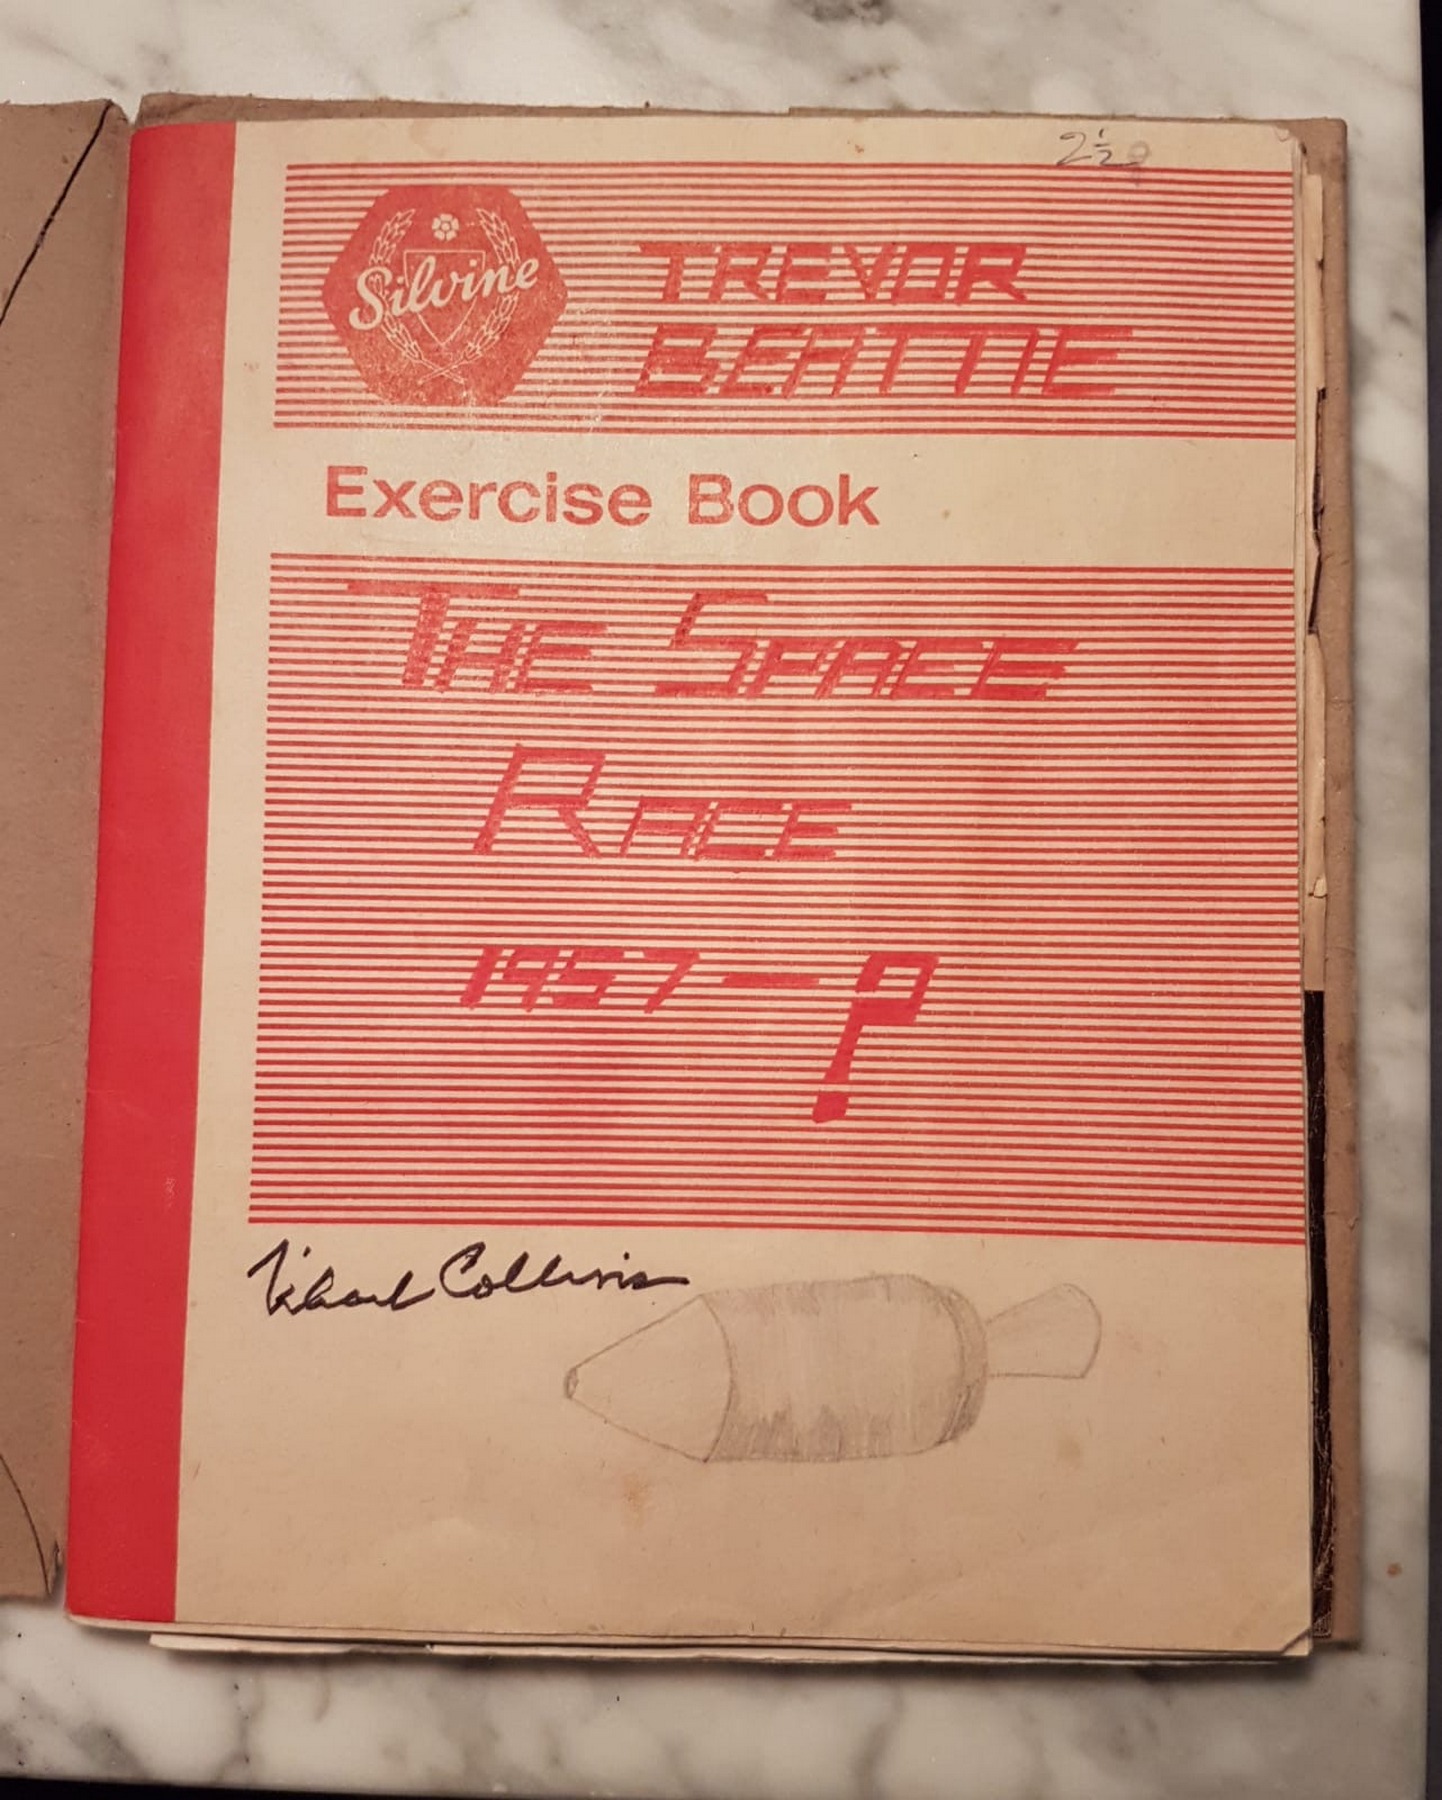 2½
Silvine
TREVOR
BEATTIE
Exercise Book
THE SPACE
RACE
1957 - ?
Michael Collins